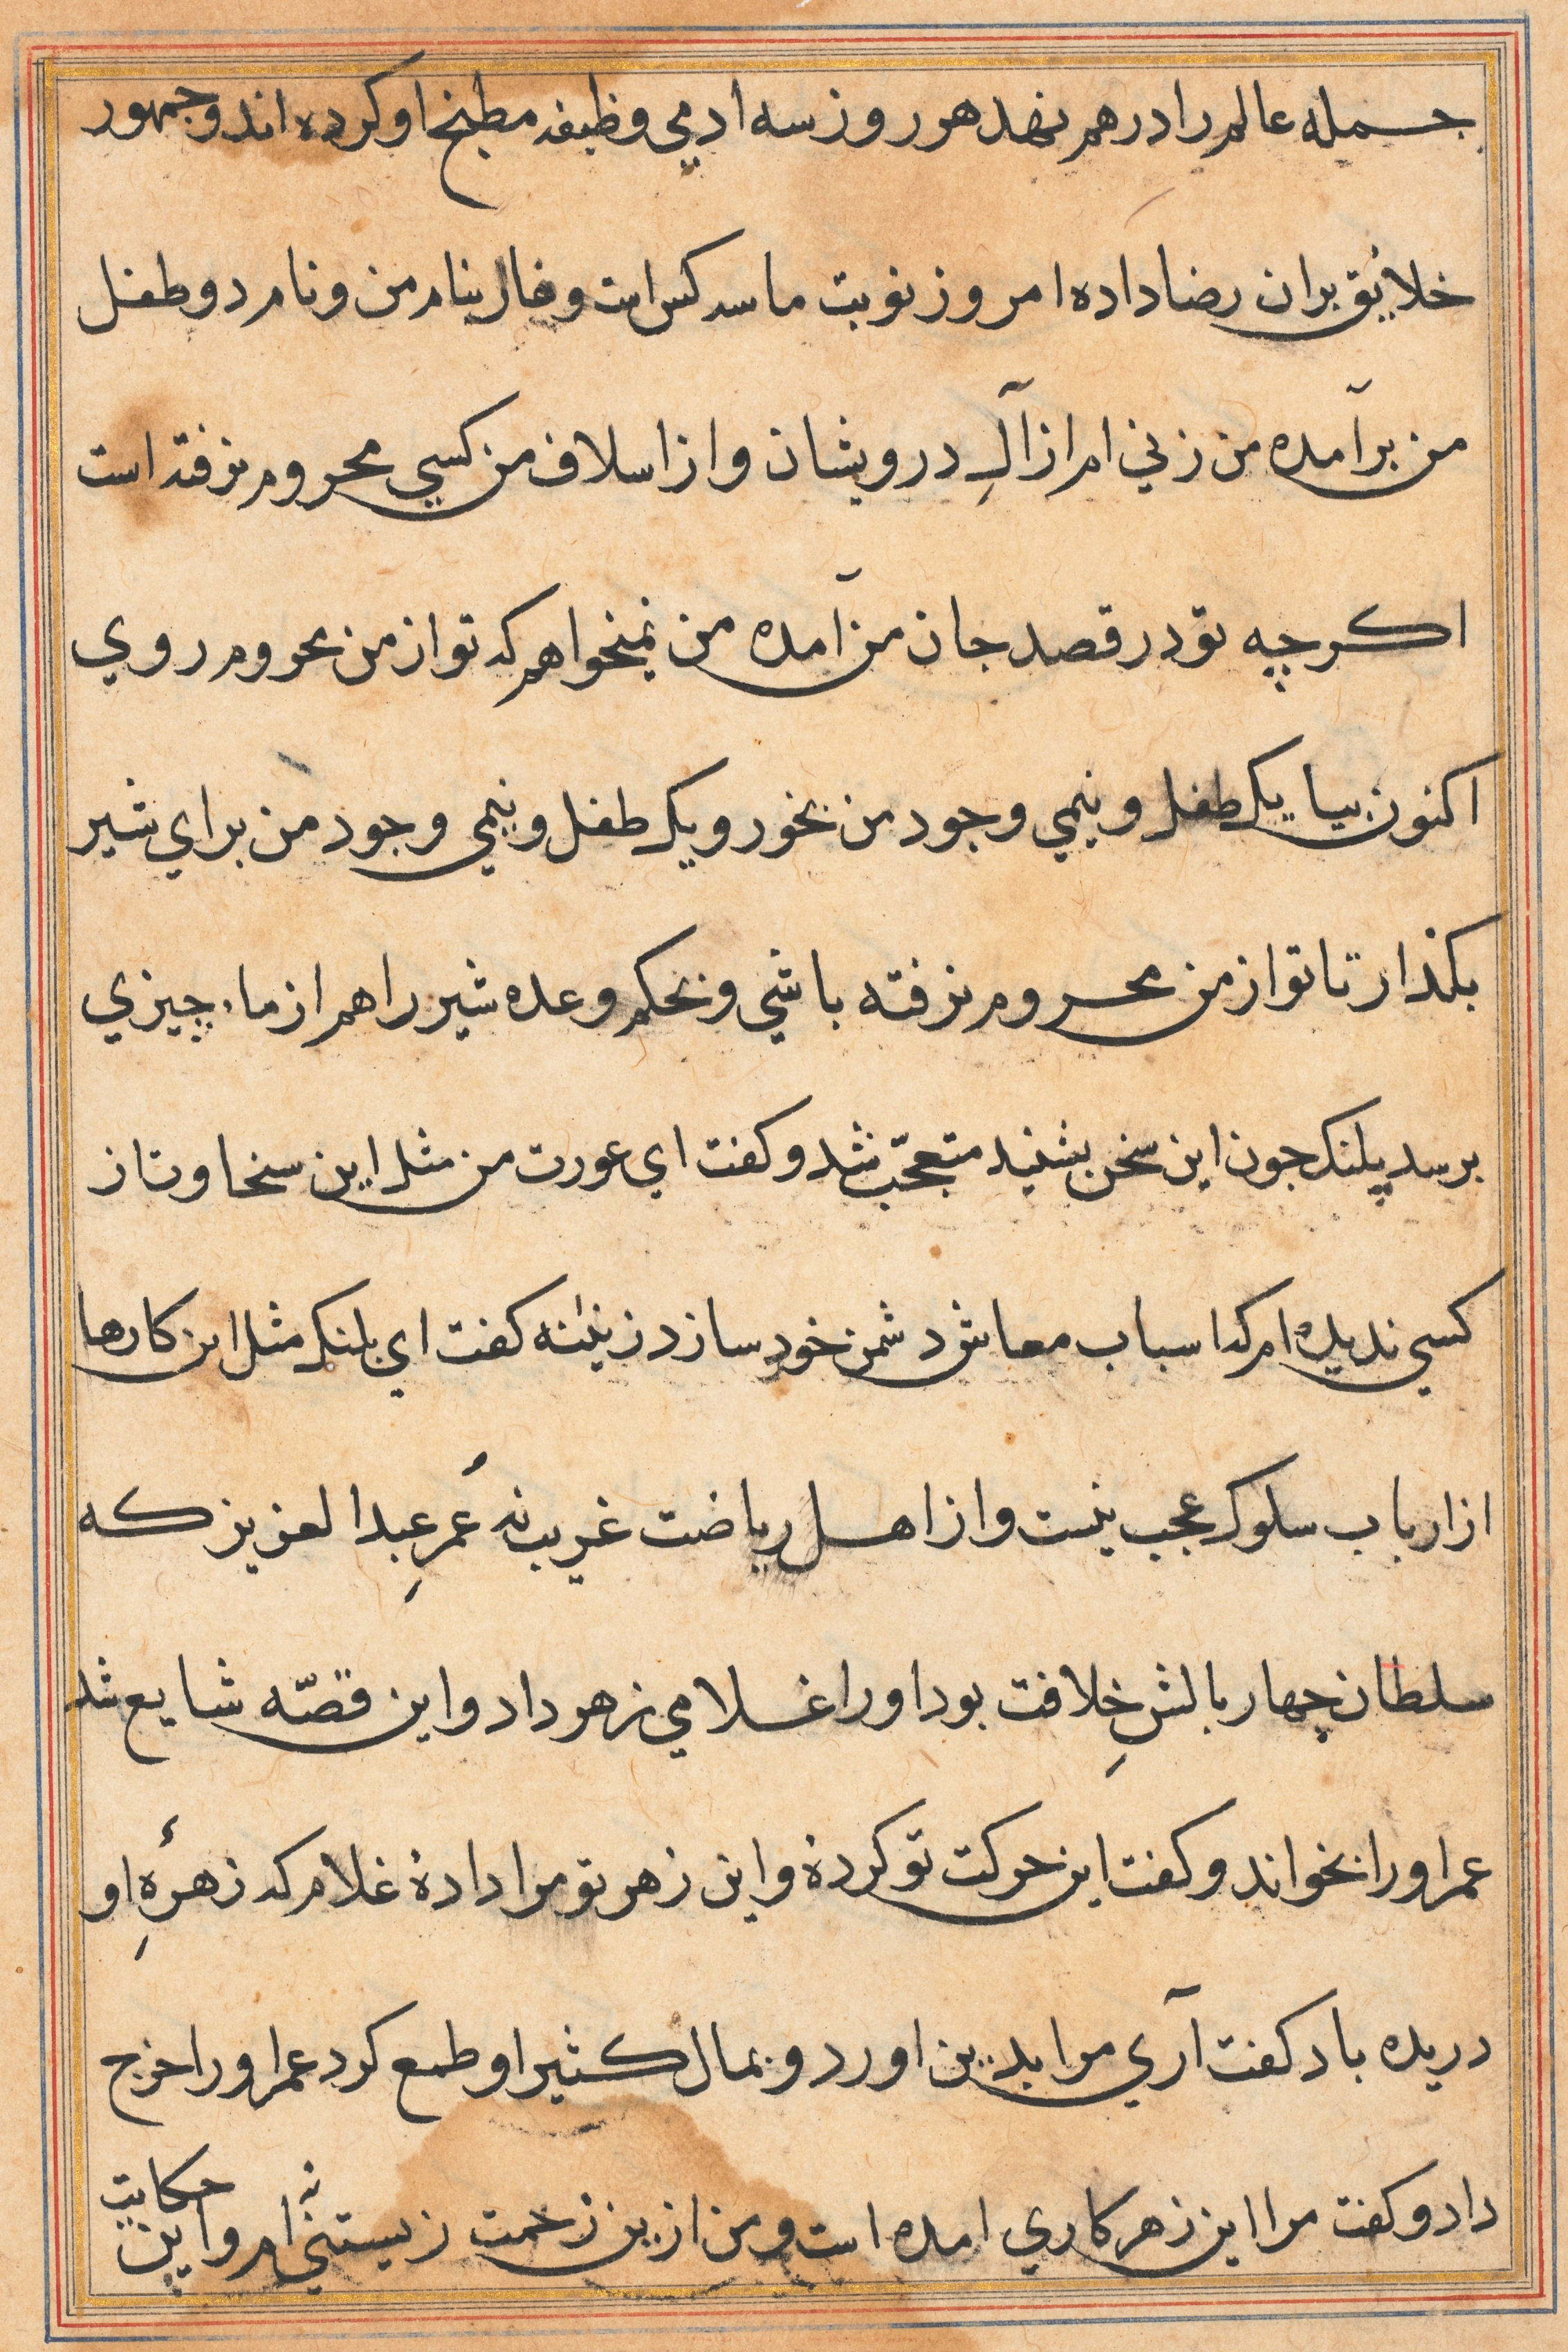 جمله عالم را درهم نهد هر روز سه ادمي وظيفه مطبخ او كرده اند و جمهور
خلايق بران رضا داده امروز نوبت ما سه كس است و فال بنام من و نام دو طفل
من برآمده من زني ام از آلِ درويشان و از اسلاف من كسي محروم نرفته است
اكرچه تو در قصد جان من آمده من نميخواهم كه تو از من محروم روي
اكنون بيا يك طفل و نيمي وجود من بخور و يك طفل و نيمي وجود من براي شير
بكذار تا تو از من محروم نرفته باشي و بحكم وعده شير را هم از ما چيزي
برسد پلنك چون اين سخن بشنيد متعجّب شد و كفت اي عورت من مثل اين سخاوت از
كسي نديده ام كه اسباب معاش دشمن خود سازد زينه كفت اي پلنك مثل اين كارها
از ارباب سلوك عجب نيست و از اهل رياضت غريب نه عُمرِ عبدالعزيز كه
سلطان چهار بالشِ خِلافت بود او را غلامي زهر داد و اين قصّه شايع شد
عمر او را بخواند و كفت اين حركت تو كردهٔ و اين زهر تو مرا دادهٔ غلام كه زهرهِٔ او
دريده باد كفت آري مرا بدين اورد و بمال كثير او طمع كرد عمر او را خرج
داد و كفت مرا اين زهر كاري امده است و من ازين زخمت زيستني نه ام و اين حكايت